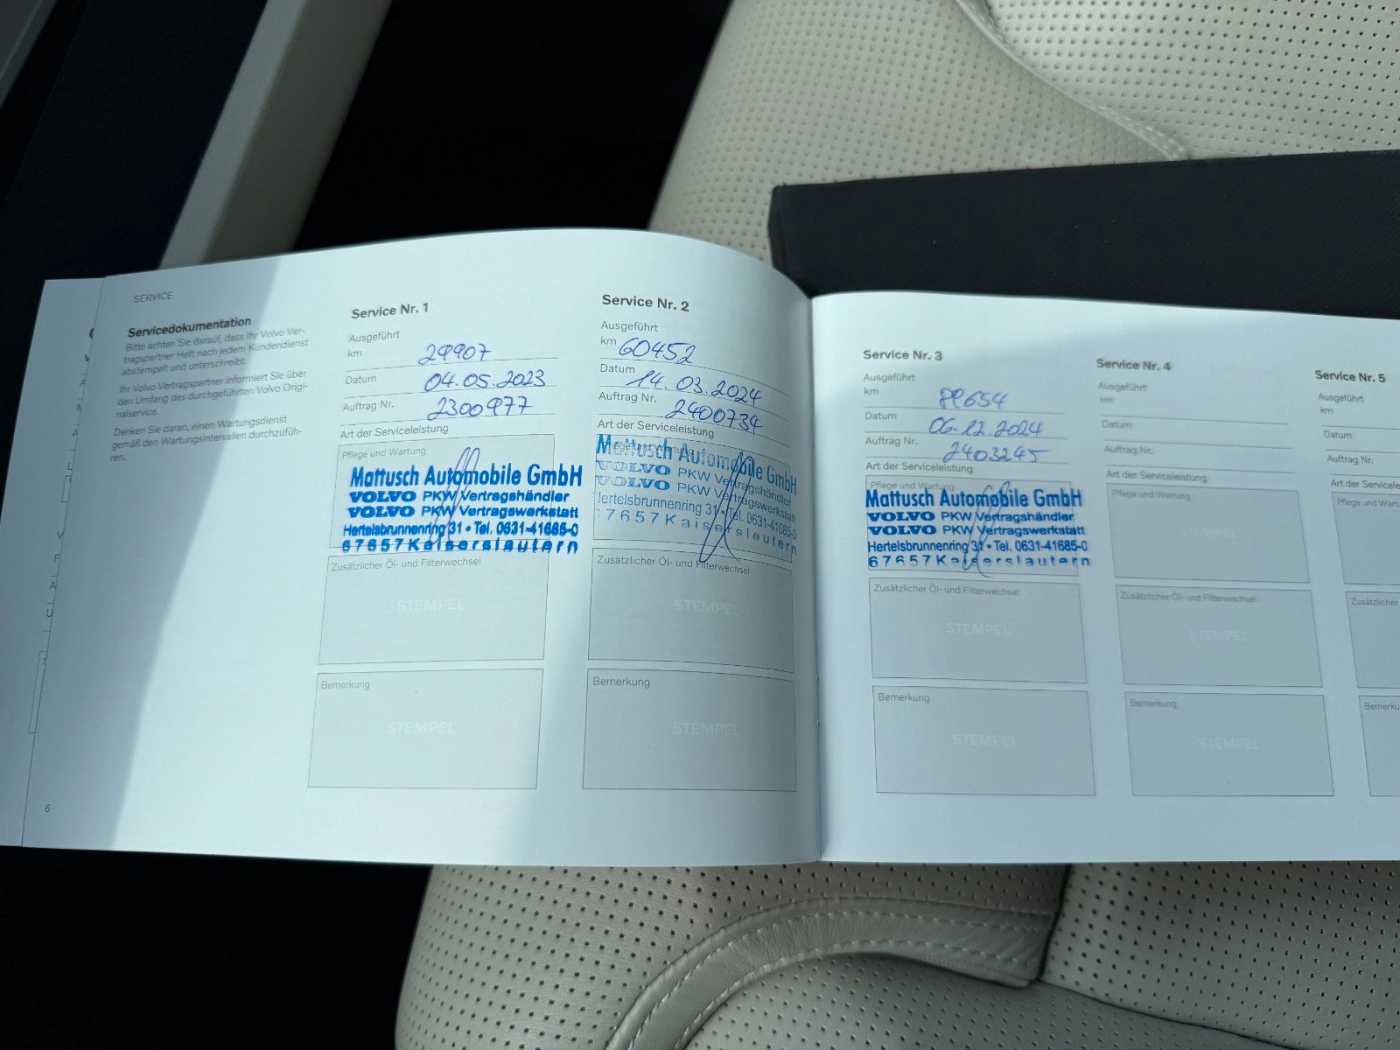 SERVICE
Servicedokumentation
Bitte achten Sie darauf, dass Ihr Volvo Ver-
tragspartner Heft nach jedem Kundendienst
abstempelt und unterschreibt.
Ihr Volvo Vertragspartner informiert Sie über
den Umfang des durchgeführten Volvo Origi-
nalservice.
Denken Sie daran, einen Wartungsdienst
gemäß den Wartungsintervallen durchzufüh-
ren.
6
Service Nr. 1
Ausgeführt
km 29907
Datum 04.05.2023
Auftrag Nr. 2300977
Art der Serviceleistung
Pflege und Wartung
Mattusch Automobile GmbH
VOLVO PKW Vertragshändler
VOLVO PKW Vertragswerkstatt
Hertelsbrunnenring 31 • Tel. 0631-41685-0
67657 Kaiserslautern
Zusätzlicher Öl- und Filterwechsel
STEMPEL
Bemerkung
STEMPEL
Service Nr. 2
Ausgeführt
km 60452
Datum 14.03.2024
Auftrag Nr. 2400734
Art der Serviceleistung
Mattusch Automobile GmbH
VOLVO PKW Vertragshändler
VOLVO PKW Vertragswerkstatt
Hertelsbrunnenring 31 • Tel. 0631-41685-0
67657 Kaiserslautern
Zusätzlicher Öl- und Filterwechsel
STEMPEL
Bemerkung
STEMPEL
Service Nr. 3
Ausgeführt
km
Datum 06.12.2024
Auftrag Nr. 2403245
Art der Serviceleistung
Pflege und Wartung
Mattusch Automobile GmbH
VOLVO PKW Vertragshändler
VOLVO PKW Vertragswerkstatt
Hertelsbrunnenring 31 • Tel. 0631-41685-0
67657 Kaiserslautern
Zusätzlicher Öl- und Filterwechsel
STEMPEL
Bemerkung
STEMPEL
Service Nr. 4
Ausgeführt
km
Datum
Auftrag Nr.
Art der Serviceleistung
Pflege und Wartung
STEMPEL
Zusätzlicher Öl- und Filterwechsel
STEMPEL
Bemerkung
STEMPEL
Service Nr. 5
Ausgeführt
km
Datum
Auftrag Nr.
Art der Service
Pflege und Wart
Zusätzlicher
Bemerku